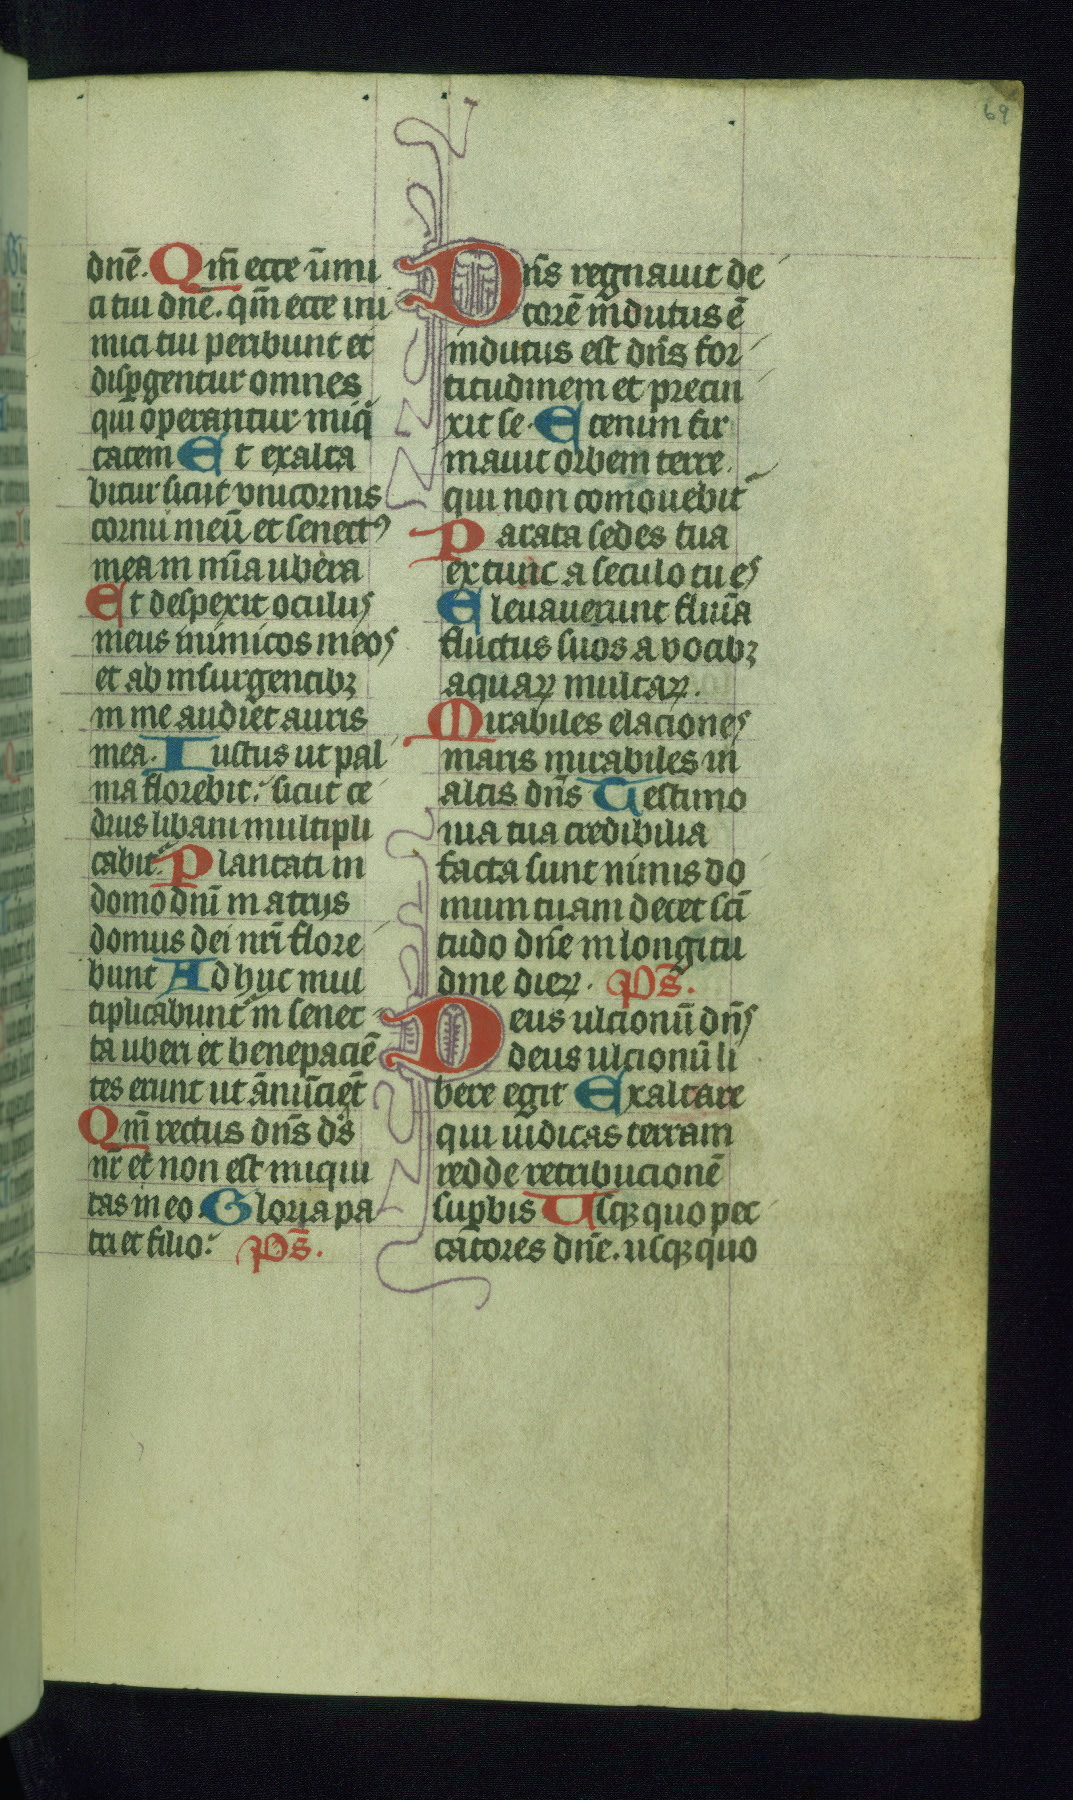 69
dnē. Qm̄ ecce īnimi
ci tui dnē. qm̄ ecce ini
mici tui peribunt et
disp̱gentur omnes
qui operantur iniq̇
tatem Et exalta
bitur sicut vnicornis
cornu meū et senectꝰ
mea in mīa ubera
Et despexit oculus
meus inimicos meos
et ab insurgentibꝫ
in me audiet auris
mea. Iustus ut pal
ma florebit: sicut ce
drus libani multipli
cabit̄: Plantati in
domo dnī in atrijs
domus dei nrī flore
bunt Ad huc mul
tiplicabunt̄ in senec
ta uberi et bene pacie̅
tes erunt ut ānūcie̅t
Qm̄ rectus dn̄s ds̄
nr̄ et non est iniqui
tas in eo. Gloria pa
tri et filio: Ps̄.
Dn̄s regnauit de
corē indutus ē
indutus est dn̄s for
titudinem et precin
xit se. Etenim fir
mauit orbem terre.
qui non comouebit̄
Parata sedes tua
ex tunc a seculo tu es
Eleuauerunt flūia
fluctus suos a vocibꝫ
aquaꝝ multaꝝ.
Mirabiles elaciones
maris mirabiles in
altis dn̄s Testimo
nia tua credibilia
facta sunt nimis do
mum tuam decet sc̄i
tudo dn̄e in longitu
dine dieꝝ. Ps̄.
Deus ulcionū dn̄s
deus ulcionū li
bere egit Exaltare
qui iudicas terram
redde retribucionē
sup̱bis Usqꝫ quo pec
catores dn̄e. usqꝫ quo